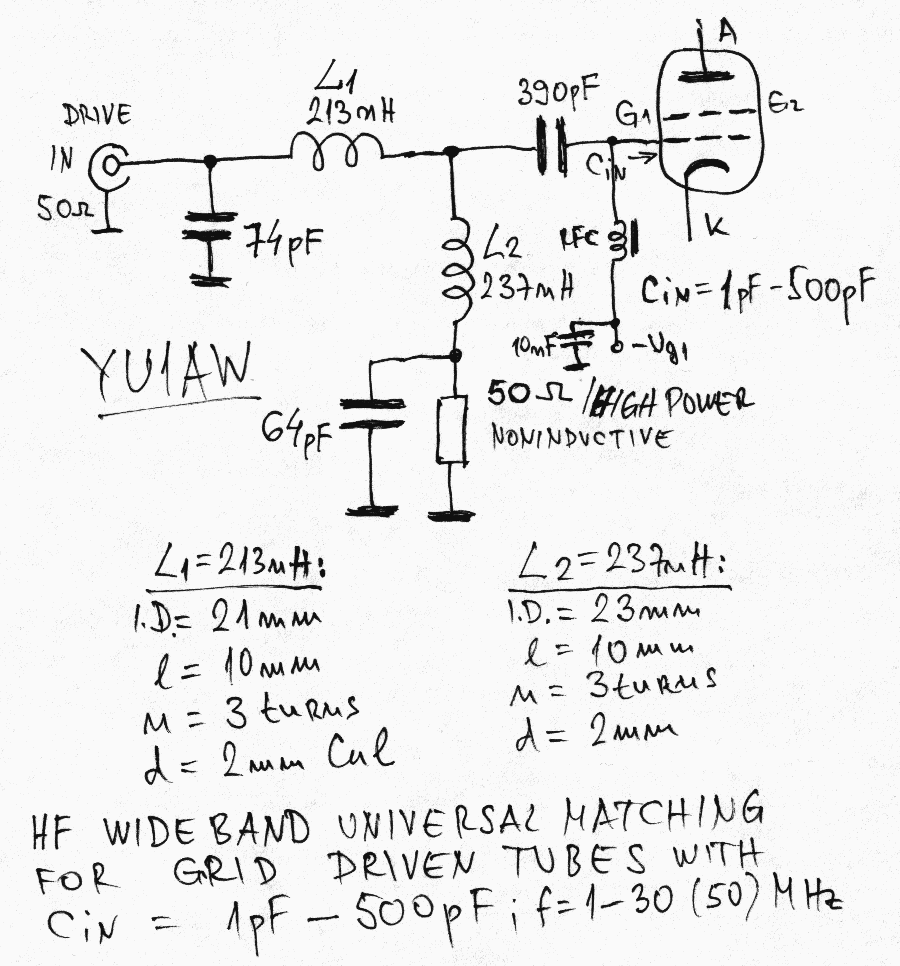 L1
213nH
DRIVE
IN
50Ω
74pF
390pF
A
G1
G2
CiN
K
L2
237nH
RFC
CiN=1pF-500pF
10nF
-Vg1
YU1AW
64pF
50Ω/HIGH POWER
NONINDUCTIVE
L1=213nH:
I.D.= 21mm
l= 10mm
n = 3 turns
d= 2mm Cul
L2=237nH:
I.D.= 23mm
l= 10mm
n = 3turns
d= 2mm
HF WIDEBAND UNIVERSAL MATCHING
FOR GRID DRIVEN TUBES WITH
CiN = 1pF – 500pF; f=1-30 (50) MHz